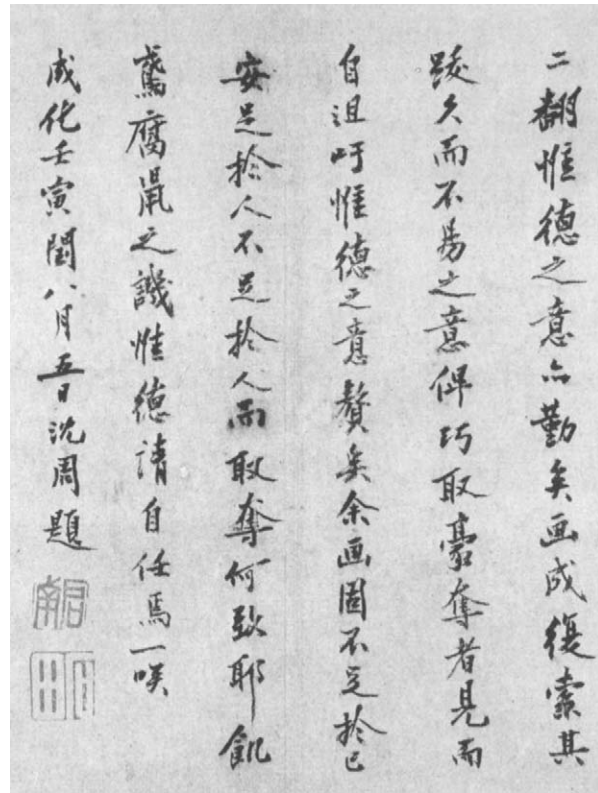 二翻惟德之意亦勤矣画成復索其
跋久而不易之意俾巧取豪奪者見而
自沮吁惟德之意贅矣余画固不足於己
安足於人不足於人而取奪何致耶飢
鳶腐鼠之譏惟德請自任焉一咲
成化壬寅閏八月五日沈周題
啓南
石田